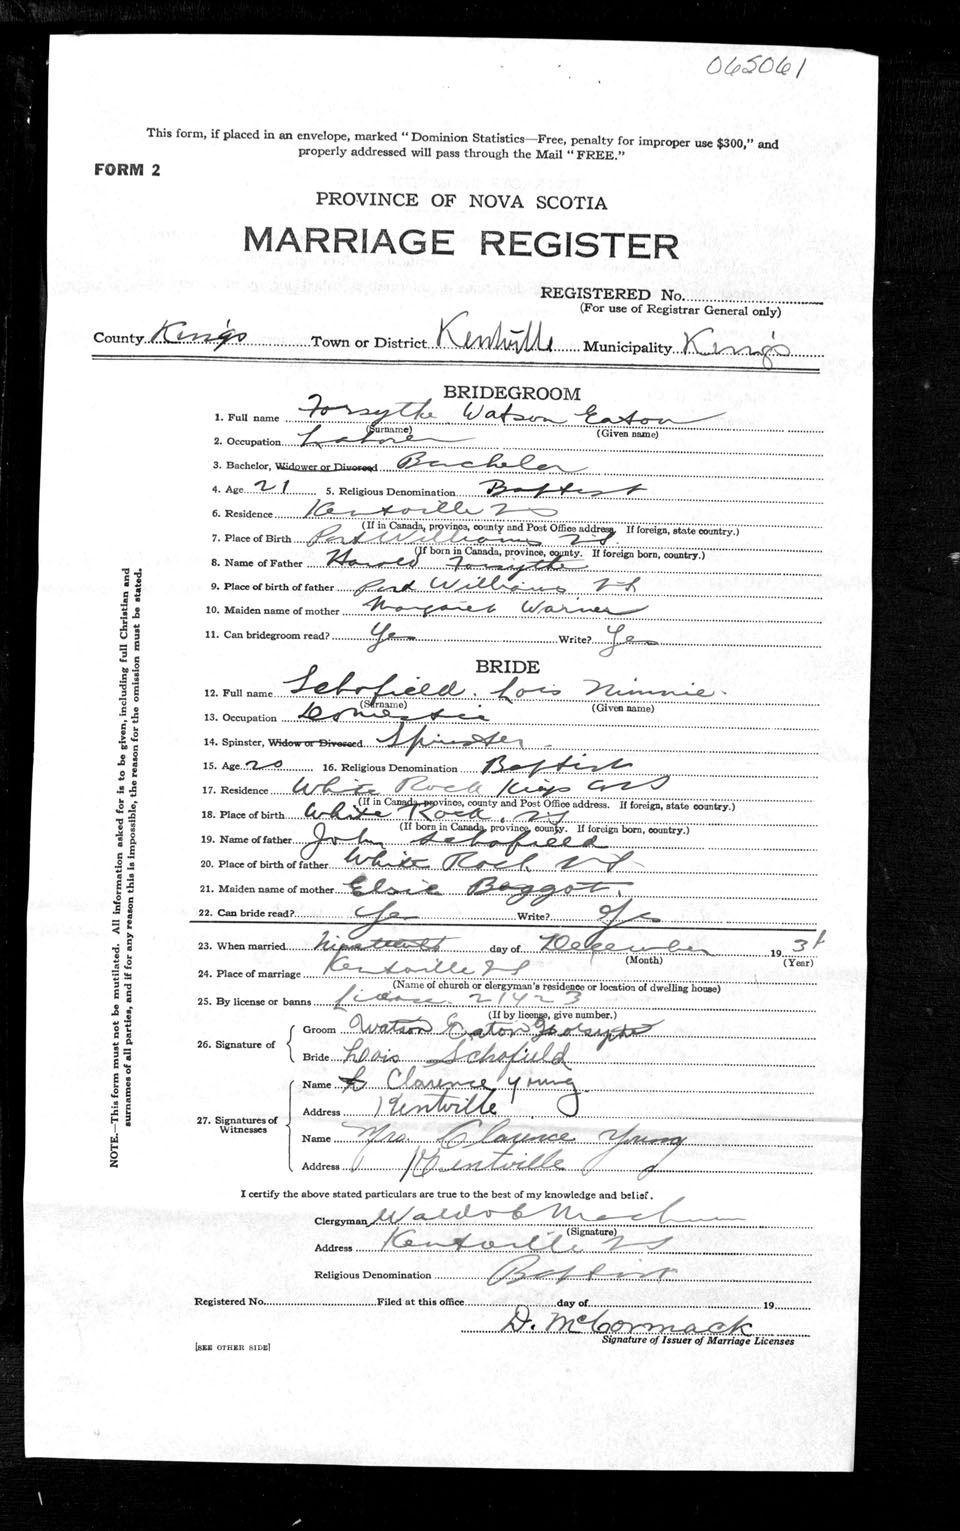 065061
This form, if placed in an envelope, marked "Dominion Statistics—Free, penalty for improper use $300," and
properly addressed will pass through the Mail "FREE."
FORM 2
PROVINCE OF NOVA SCOTIA
MARRIAGE REGISTER
REGISTERED No.
(For use of Registrar General only)
County Kings Town or District Kentville Municipality Kings
BRIDEGROOM
1. Full name Forsythe Watson Eaton
(Surname) (Given name)
2. Occupation Laborer
3. Bachelor, Widower or Divorced Bachelor
4. Age 21 5. Religious Denomination Baptist
6. Residence Kentville NS
(If in Canada, province, county and Post Office address. If foreign, state country.)
7. Place of Birth Port Williams NS.
(If born in Canada, province, county. If foreign born, country.)
8. Name of Father Harold Forsythe
9. Place of birth of father Port Williams NS
10. Maiden name of mother Margaret Warner
11. Can bridegroom read? Yes Write? Yes
BRIDE
12. Full name Schofield. Lois Minnie.
(Surname) (Given name)
13. Occupation Domestic
14. Spinster, Widow or Divorced Spinster
15. Age 20 16. Religious Denomination Baptist
17. Residence White Rock Kings Co NS
(If in Canada, province, county and Post Office address. If foreign, state country.)
18. Place of birth White Rock, NS
(If born in Canada, province, county. If foreign born, country.)
19. Name of father John Schofield
20. Place of birth of father White Rock NS
21. Maiden name of mother Elsie Baggot.
22. Can bride read? Yes Write? Yes
23. When married Nineteenth day of December 19 31
(Month) (Year)
24. Place of marriage Kentville NS
(Name of church or clergyman's residence or location of dwelling house)
25. By license or banns License. 21423
(If by license, give number.)
26. Signature of
Groom Watson Eaton Forsythe
Bride Lois Schofield
27. Signatures of Witnesses
Name Clarence Young
Address Kentville
Name Mrs. Clarence Young
Address Kentville
I certify the above stated particulars are true to the best of my knowledge and belief.
Clergyman Waldo C Machum
(Signature)
Address Kentville NS
Religious Denomination Baptist
Registered No. Filed at this office day of 19
D. McCormack
Signature of Issuer of Marriage Licenses
[SEE OTHER SIDE]
NOTE.—This form must not be mutilated. All information asked for is to be given, including full Christian and
surnames of all parties, and if for any reason this is impossible, the reason for the omission must be stated.